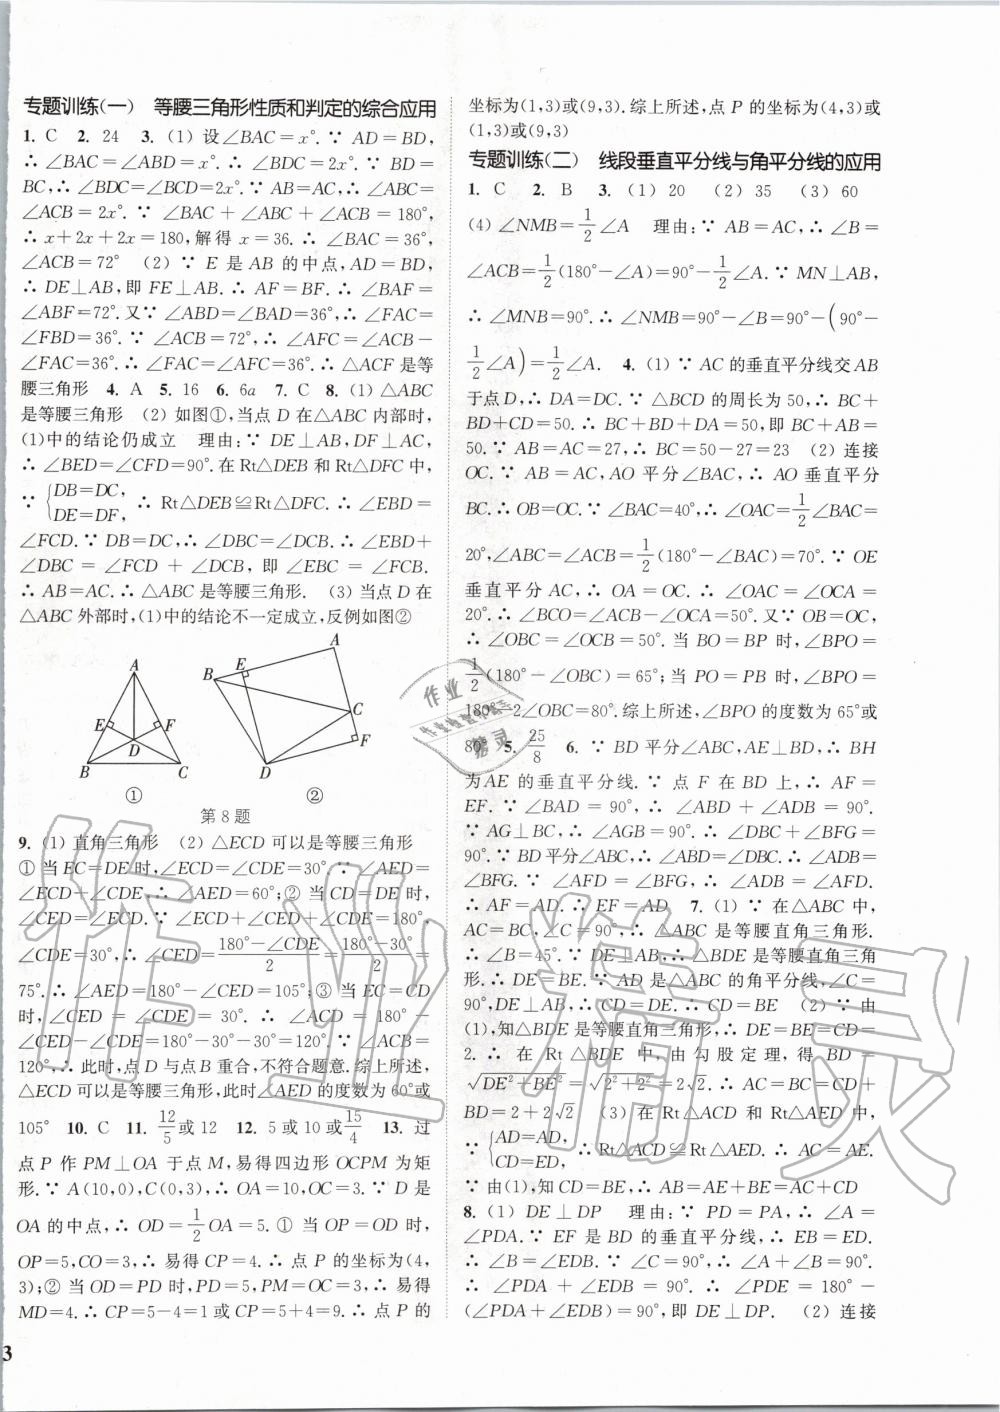 专题训练(一) 等腰三角形性质和判定的综合应用
1. C 2. 24 3. (1) 设∠BAC=x°.∵ AD=BD,
∴ ∠BAC=∠ABD=x°.∴ ∠BDC=2x°.∵ BD=
BC,∴ ∠BDC=∠BCD=2x°.∵ AB=AC,∴ ∠ABC=
∠ACB=2x°.∵ ∠BAC+∠ABC+∠ACB=180°,
∴ x+2x+2x=180,解得 x=36.∴ ∠BAC=36°,
∠ACB=72° (2) ∵ E 是 AB 的中点,AD=BD,
∴ DE⊥AB,即 FE⊥AB.∴ AF=BF.∴ ∠BAF=
∠ABF=72°.又∵ ∠ABD=∠BAD=36°,∴ ∠FAC=
∠FBD=36°.∵ ∠ACB=72°,∴ ∠AFC=∠ACB-
∠FAC=36°.∴ ∠FAC=∠AFC=36°.∴ △ACF 是等
腰三角形 4. A 5. 16 6. 6a 7. C 8. (1) △ABC
是等腰三角形 (2) 如图①,当点 D 在△ABC 内部时,
(1)中的结论仍成立 理由:∵ DE⊥AB,DF⊥AC,
∴ ∠BED=∠CFD=90°.在 Rt△DEB 和 Rt△DFC 中,
∵ {DB=DC, DE=DF, ∴ Rt△DEB≌Rt△DFC.∴ ∠EBD=
∠FCD.∵ DB=DC,∴ ∠DBC=∠DCB.∴ ∠EBD+
∠DBC=∠FCD+∠DCB,即∠EBC=∠FCB.
∴ AB=AC.∴ △ABC 是等腰三角形. (3) 当点 D 在
△ABC 外部时,(1)中的结论不一定成立,反例如图②
A
E F
D
B C
①
A
B E
C
F
D
②
第 8 题
9. (1) 直角三角形 (2) △ECD 可以是等腰三角形
① 当 EC=DE 时,∠ECD=∠CDE=30°.∵ ∠AED=
∠ECD+∠CDE,∴ ∠AED=60°;② 当 CD=DE 时,
∠CED=∠ECD.∵ ∠ECD+∠CED+∠CDE=180°,
∠CDE=30°,∴ ∠CED=(180°-∠CDE)/2=(180°-30°)/2=
75°.∴ ∠AED=180°-∠CED=105°;③ 当 EC=CD
时,∠CED=∠CDE=30°.∴ ∠ACD=180°-
∠CED-∠CDE=180°-30°-30°=120°.∵ ∠ACB=
120°,∴ 此时,点 D 与点 B 重合,不符合题意.综上所述,
△ECD 可以是等腰三角形,此时∠AED 的度数为 60°或
105° 10. C 11. 12/5或 12 12. 5 或 10 或15/4 13. 过
点 P 作 PM⊥OA 于点 M,易得四边形 OCPM 为矩
形.∵ A(10,0),C(0,3),∴ OA=10,OC=3.∵ D 是
OA 的中点,∴ OD=1/2OA=5.① 当 OP=OD 时,
OP=5,CO=3,∴ 易得 CP=4.∴ 点 P 的坐标为(4,
3);② 当 OD=PD 时,PD=5,PM=OC=3,∴ 易得
MD=4.∴ CP=5-4=1 或 CP=5+4=9.∴ 点 P 的
3
坐标为(1,3)或(9,3).综上所述,点 P 的坐标为(4,3)或
(1,3)或(9,3)
专题训练(二) 线段垂直平分线与角平分线的应用
1. C 2. B 3. (1) 20 (2) 35 (3) 60
(4) ∠NMB=1/2∠A 理由:∵ AB=AC,∴ ∠B=
∠ACB=1/2(180°-∠A)=90°-1/2∠A.∵ MN⊥AB,
∴ ∠MNB=90°.∴ ∠NMB=90°-∠B=90°-(90°-
1/2∠A)=1/2∠A. 4. (1) ∵ AC 的垂直平分线交 AB
于点 D,∴ DA=DC.∵ △BCD 的周长为 50,∴ BC+
BD+CD=50.∴ BC+BD+DA=50,即 BC+AB=
50.∵ AB=AC=27,∴ BC=50-27=23 (2) 连接
OC.∵ AB=AC,AO 平分∠BAC,∴ AO 垂直平分
BC.∴ OB=OC.∵ ∠BAC=40°,∴ ∠OAC=1/2∠BAC=
20°,∠ABC=∠ACB=1/2(180°-∠BAC)=70°.∵ OE
垂直平分 AC,∴ OA=OC.∴ ∠OAC=∠OCA=
20°.∴ ∠BCO=∠ACB-∠OCA=50°.又∵ OB=OC,
∴ ∠OBC=∠OCB=50°.当 BO=BP 时,∠BPO=
1/2(180°-∠OBC)=65°;当 PO=PB 时,∠BPO=
180°-2∠OBC=80°.综上所述,∠BPO 的度数为 65°或
80° 5. 25/8 6. ∵ BD 平分∠ABC,AE⊥BD,∴ BH
为 AE 的垂直平分线.∵ 点 F 在 BD 上,∴ AF=
EF.∵ ∠BAC=90°,∴ ∠ABD+∠ADB=90°.
∵ AG⊥BC,∴ ∠AGB=90°.∴ ∠DBC+∠BFG=
90°.∵ BD 平分∠ABC,∴ ∠ABD=∠DBC.∴ ∠ADB=
∠BFG.∵ ∠AFD=∠BFG,∴ ∠ADB=∠AFD.
∴ AF=AD.∴ EF=AD 7. (1) ∵ 在△ABC 中,
AC=BC,∠C=90°,∴ △ABC 是等腰直角三角形.
∴ ∠B=45°.∵ DE⊥AB,∴ △BDE 是等腰直角三角
形.∴ DE=BE.∵ AD 是△ABC 的角平分线,∠C=
90°,DE⊥AB,∴ CD=DE.∴ CD=BE (2) ∵ 由
(1),知△BDE 是等腰直角三角形,∴ DE=BE=CD=
2.∴ 在 Rt△BDE 中,由勾股定理,得 BD=
√(DE²+BE²)=√(2²+2²)=2√2.∴ AC=BC=CD+
BD=2+2√2 (3) 在 Rt△ACD 和 Rt△AED 中,
∵ {AD=AD, CD=ED, ∴ Rt△ACD≌Rt△AED.∴ AC=AE.
∵ 由(1),知 CD=BE,∴ AB=AE+BE=AC+CD
8. (1) DE⊥DP 理由:∵ PD=PA,∴ ∠A=
∠PDA.∵ EF 是 BD 的垂直平分线,∴ EB=ED.
∴ ∠B=∠EDB.∵ ∠C=90°,∴ ∠A+∠B=90°.
∴ ∠PDA+∠EDB=90°.∴ ∠PDE=180°-
(∠PDA+∠EDB)=90°,即 DE⊥DP. (2) 连接
作业精灵